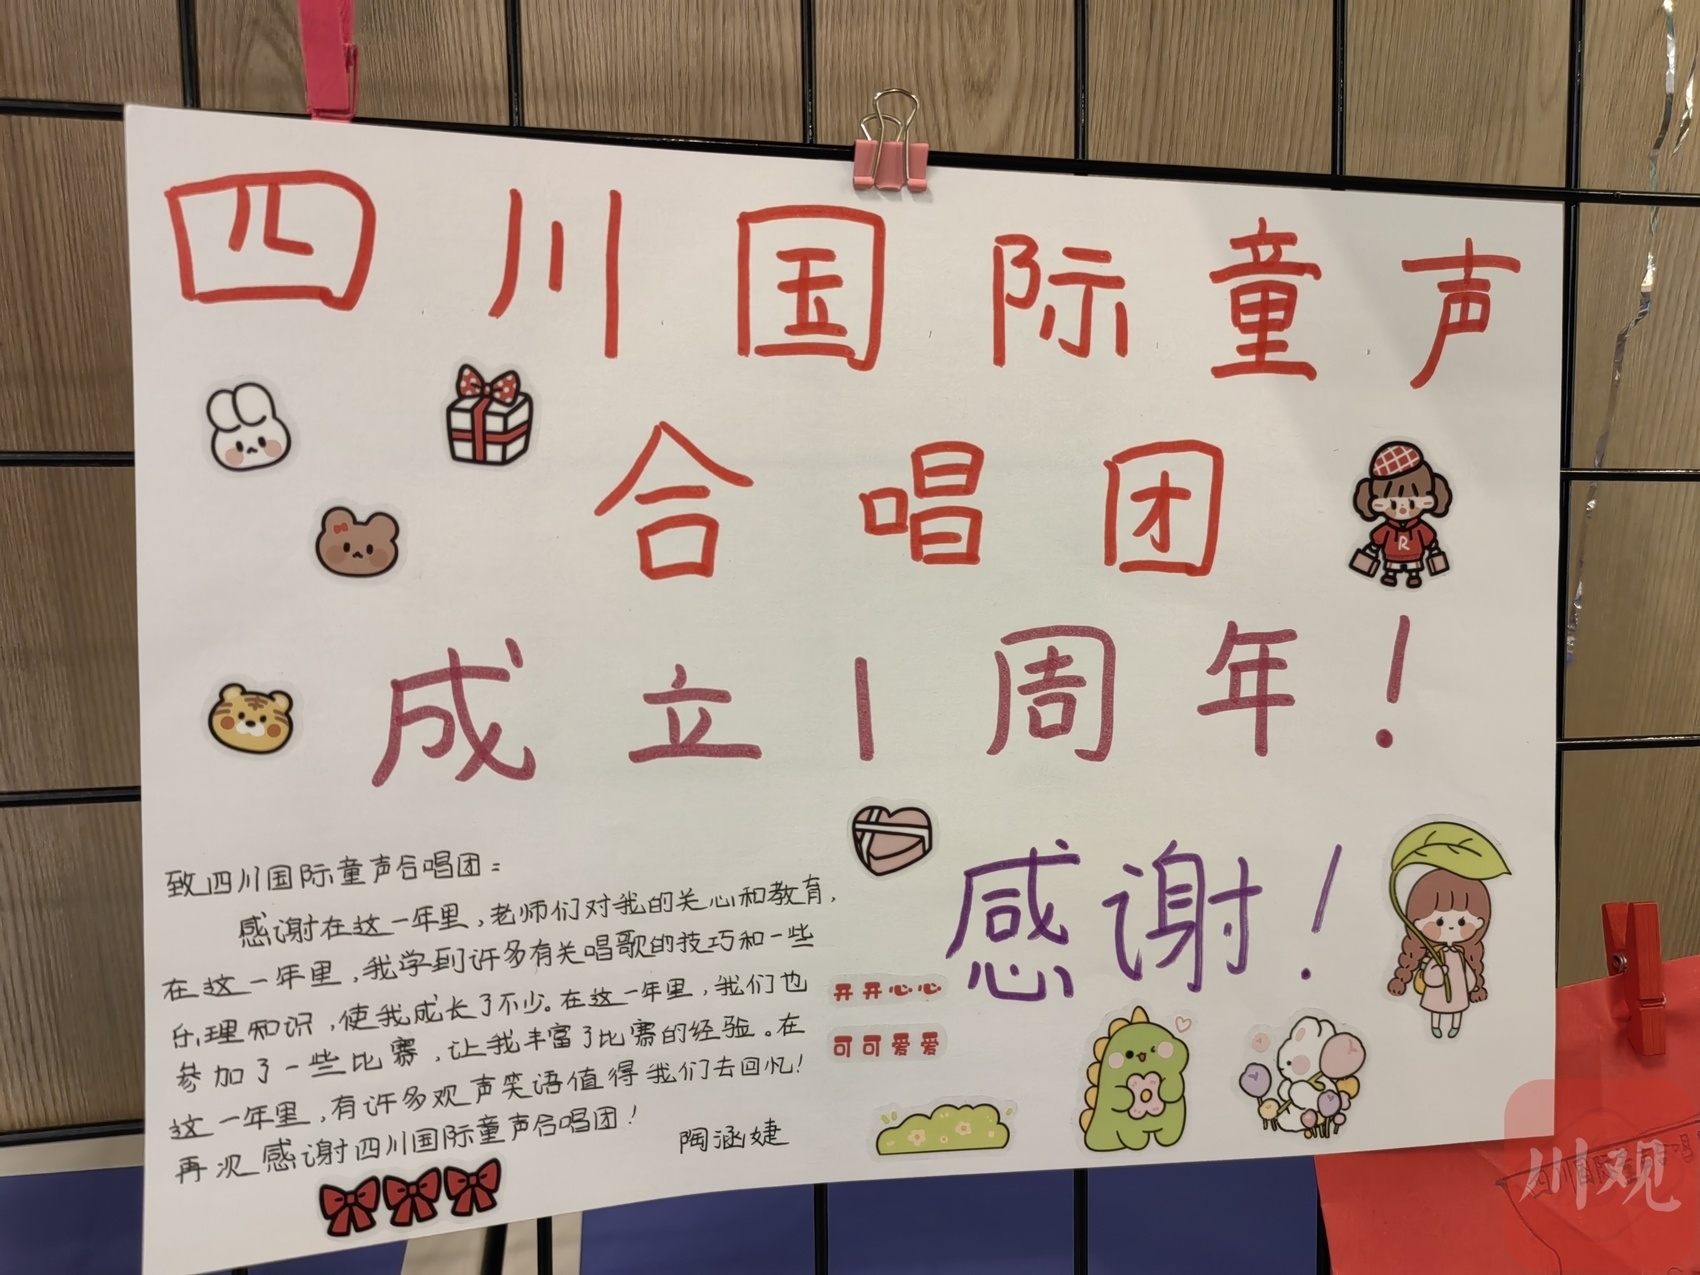 四川国际童声
合唱团
成立1周年!
感谢!
致四川国际童声合唱团:
感谢在这一年里,老师们对我的关心和教育,
在这一年里,我学到许多有关唱歌的技巧和一些
乐理知识,使我成长了不少。在这一年里,我们也
参加了一些比赛,让我丰富了比赛的经验。在
这一年里,有许多观声笑语值得我们去回忆!
再次感谢四川国际童声合唱团!
陶涵婕
开开心心
可可爱爱
R
川观